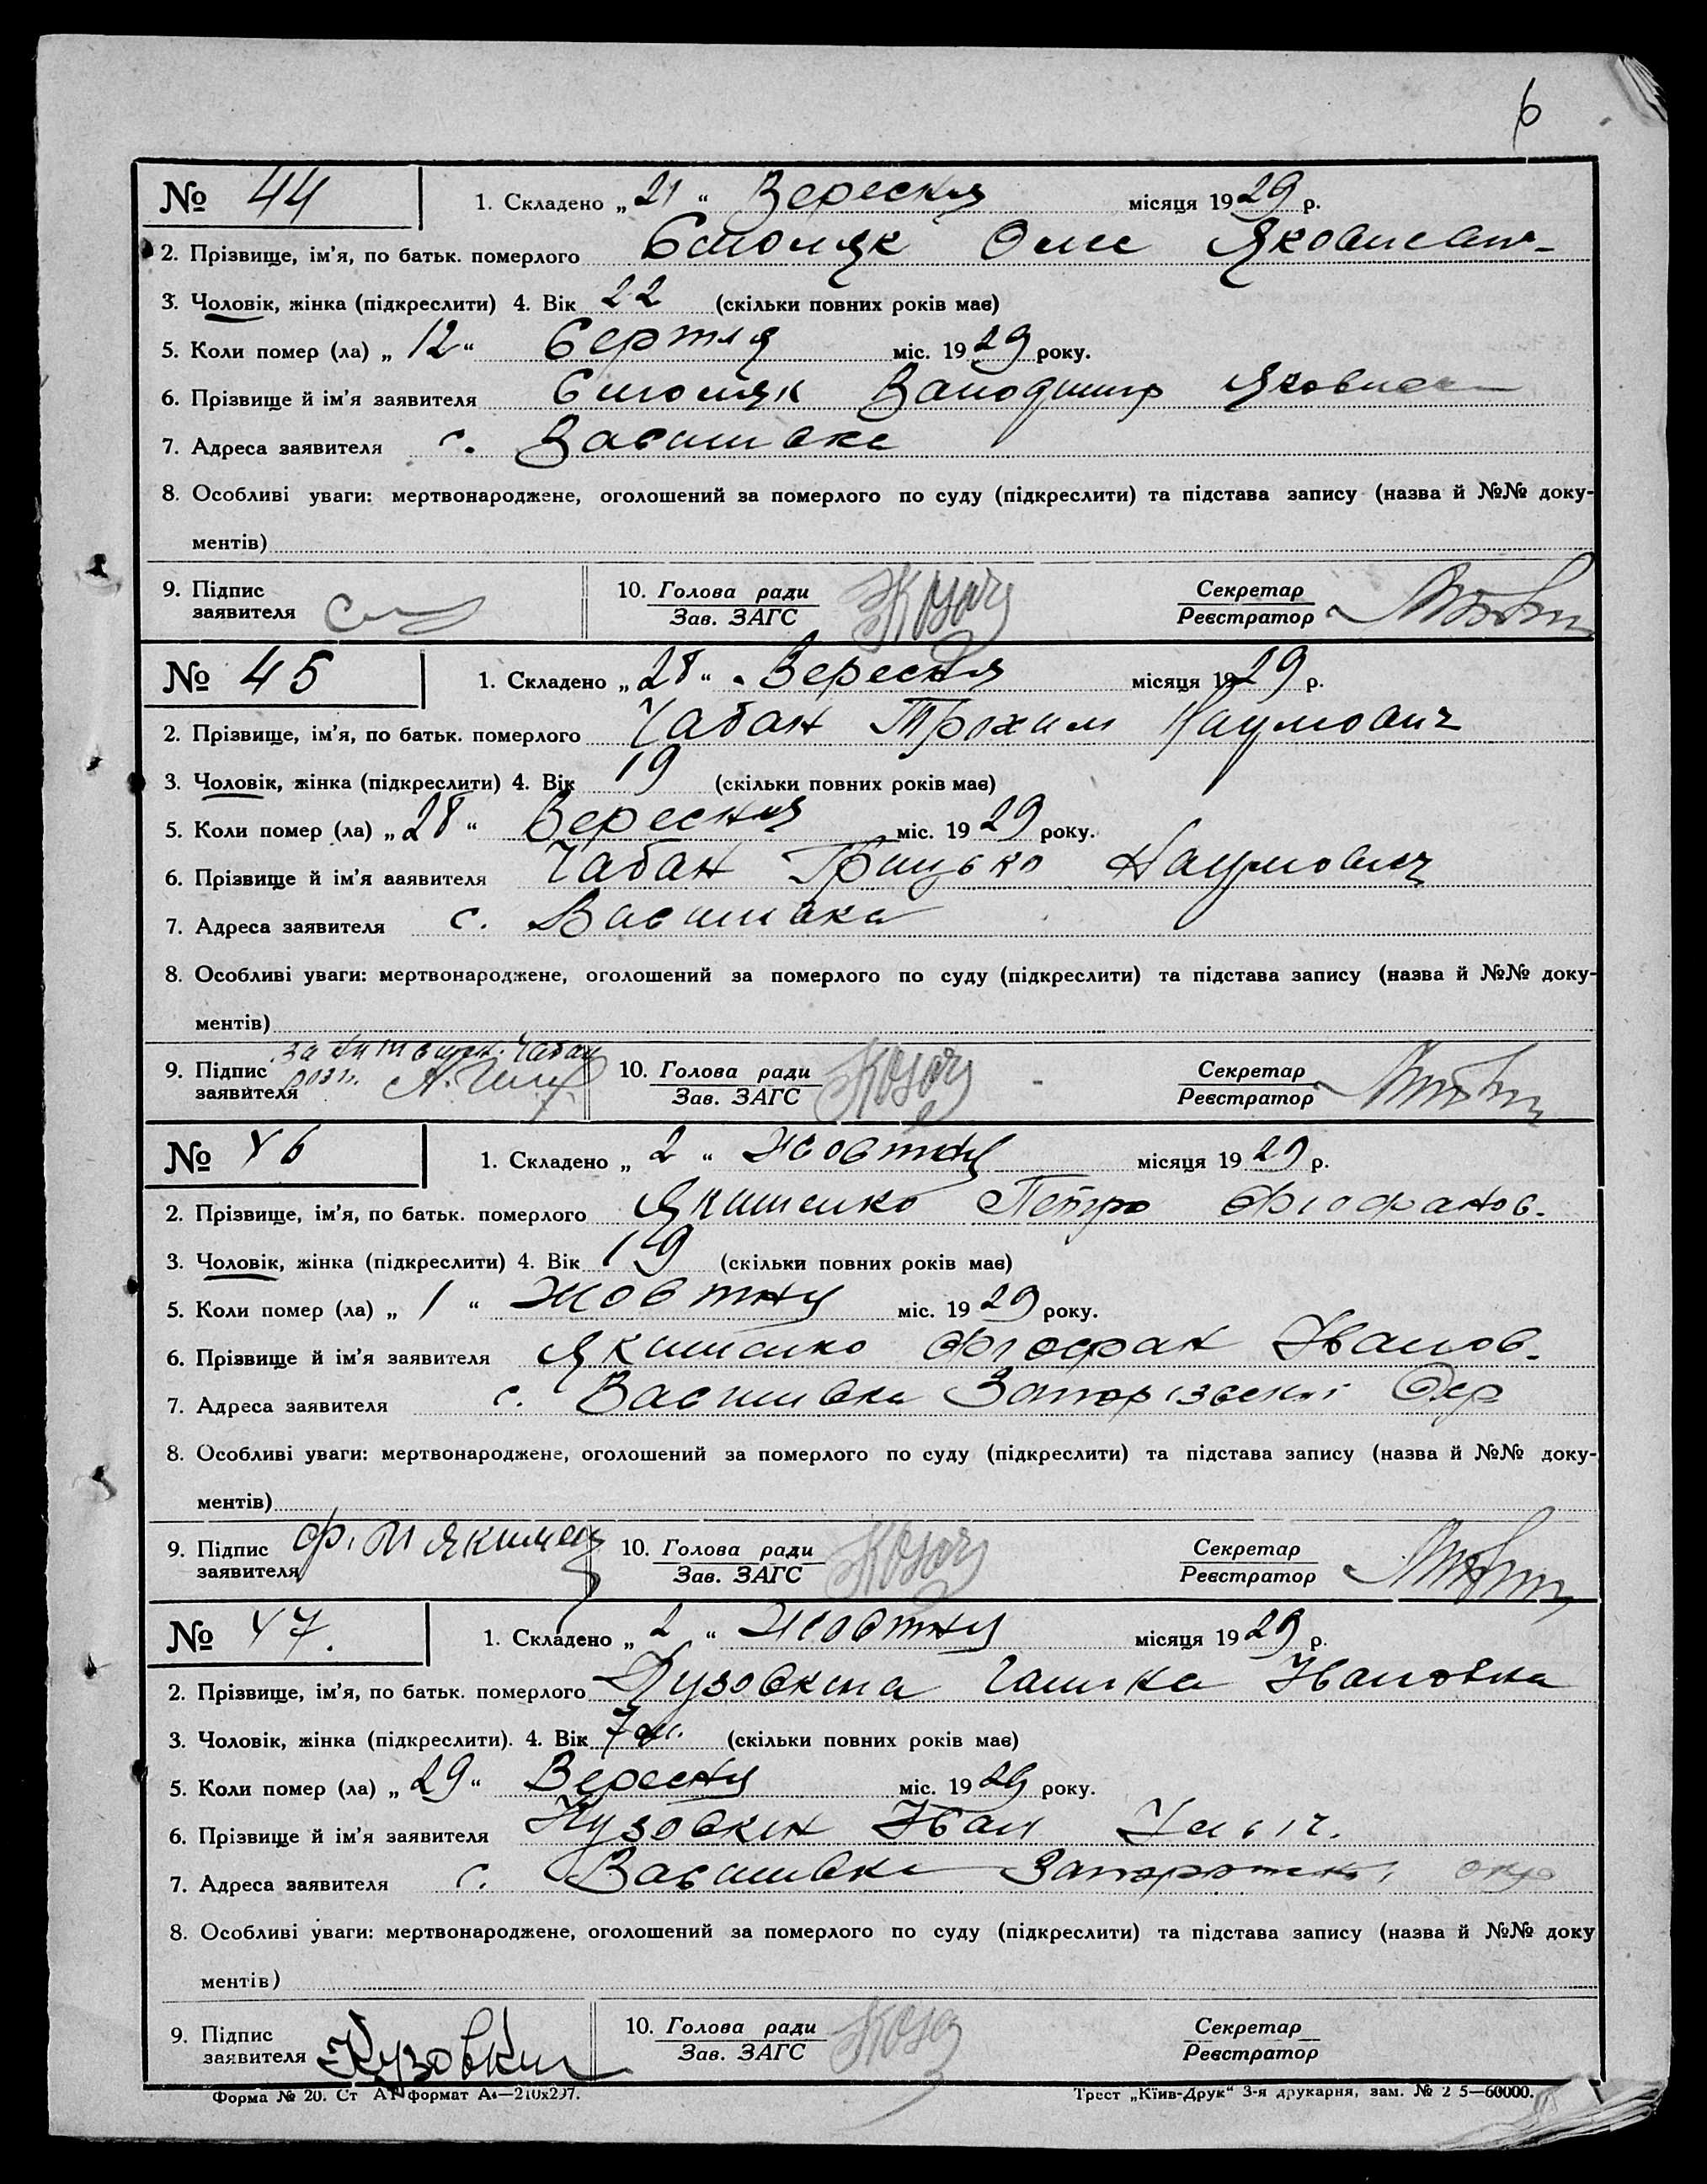 6
№ 44 1. Складено „ 21 “ Вересня місяця 1929 р.
2. Прізвище, ім'я, по батьк. померлого
3. Чоловік, жінка (підкреслити) 4. Вік 22 (скільки повних років має)
5. Коли помер (ла) „ 12 “ міс. 1929 року.
6. Прізвище й ім'я заявителя Володимир
7. Адреса заявителя с. Василивка
8. Особливі уваги: мертвонароджене, оголошений за померлого по суду (підкреслити) та підстава запису (назва й №№ доку-
ментів)
9. Підпис заявителя 10. Голова ради Зав. ЗАГС Козач Секретар Реєстратор
№ 45 1. Складено „ 28 “ Вересня місяця 1929 р.
2. Прізвище, ім'я, по батьк. померлого Чабан Трохим Наумович
3. Чоловік, жінка (підкреслити) 4. Вік 19 (скільки повних років має)
5. Коли помер (ла) „ 28 “ Вересня міс. 1929 року.
6. Прізвище й ім'я ааявителя Чабан Грицько Наумович
7. Адреса заявителя с. Василивка
8. Особливі уваги: мертвонароджене, оголошений за померлого по суду (підкреслити) та підстава запису (назва й №№ доку-
ментів)
9. Підпис заявителя Чабан 10. Голова ради Зав. ЗАГС Козач Секретар Реєстратор
№ 46 1. Складено „ 2 “ Жовтня місяця 1929 р.
2. Прізвище, ім'я, по батьк. померлого Якименко Петро Фіофанов.
3. Чоловік, жінка (підкреслити) 4. Вік 19 (скільки повних років має)
5. Коли помер (ла) „ 1 “ Жовтня міс. 1929 року.
6. Прізвище й ім'я заявителя Якименко Фіофан Іванов.
7. Адреса заявителя с. Василивка
8. Особливі уваги: мертвонароджене, оголошений за померлого по суду (підкреслити) та підстава запису (назва й №№ доку-
ментів)
9. Підпис заявителя 10. Голова ради Зав. ЗАГС Козач Секретар Реєстратор
№ 47. 1. Складено „ 2 “ Жовтня місяця 1929 р.
2. Прізвище, ім'я, по батьк. померлого Кузовкина Галина Івановна
3. Чоловік, жінка (підкреслити). 4. Вік 7 м. (скільки повних років має)
5. Коли помер (ла) „ 29 “ Вересня міс. 1929 року.
6. Прізвище й ім'я заявителя Кузовкин Іван
7. Адреса заявителя с. Василивка
8. Особливі уваги: мертвонароджене, оголошений за померлого по суду (підкреслити) та підстава запису (назва й №№ доку
ментів)
9. Підпис заявителя Кузовкин 10. Голова ради Зав. ЗАГС Козач Секретар Реєстратор
Форма № 20. Ст формат А4—210х297. Трест „Київ-Друк“ 3-я друкарня, зам. № 2 5—60000.